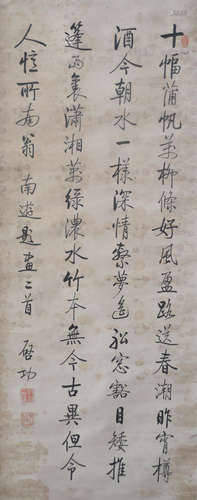 十幅蒲帆萬柳條好風盈路送春潮昨宵樽
酒今朝水一樣深情繫夢遙舩窓豁目矮推
篷雨裏瀟湘萬綠濃水竹本無今古異但令
人憶所南翁 南遊題畫二首 啓功